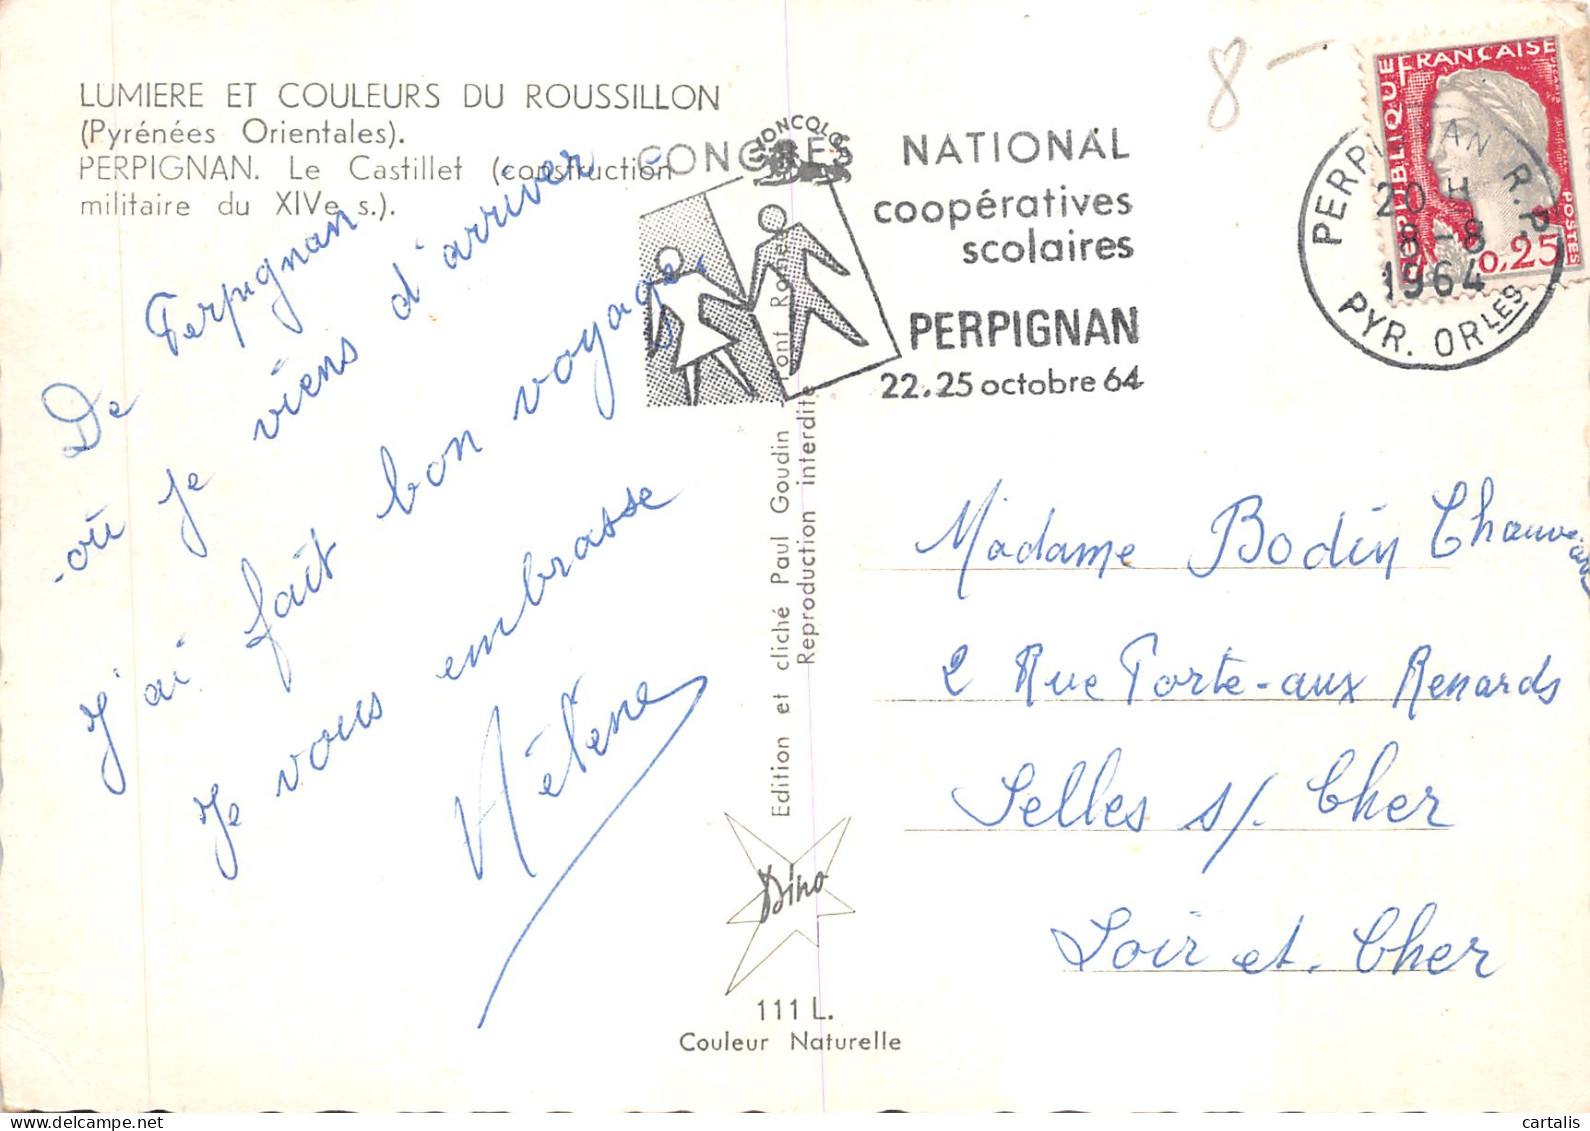 LUMIERE ET COULEURS DU ROUSSILLON
(Pyrénées Orientales).
PERPIGNAN. Le Castillet (construction
militaire du XIVe s.).
De Perpignan
où je viens d'arriver
j'ai fait bon voyage.
Je vous embrasse
Hélène
Edition et cliché Paul Goudin
Reproduction interdite
Dino
111 L.
Couleur Naturelle
CONGRES NATIONAL
coopératives
scolaires
PERPIGNAN
22.25 octobre 64
8 -
REPUBLIQUE FRANÇAISE
POSTES
0,25
PERPIGNAN R.P.
20 H
8-8
1964
PYR. ORLES
Madame Bodin Chauveau
2 Rue Porte-aux Renards
Selles s/. Cher
Loir et. Cher
cartalis